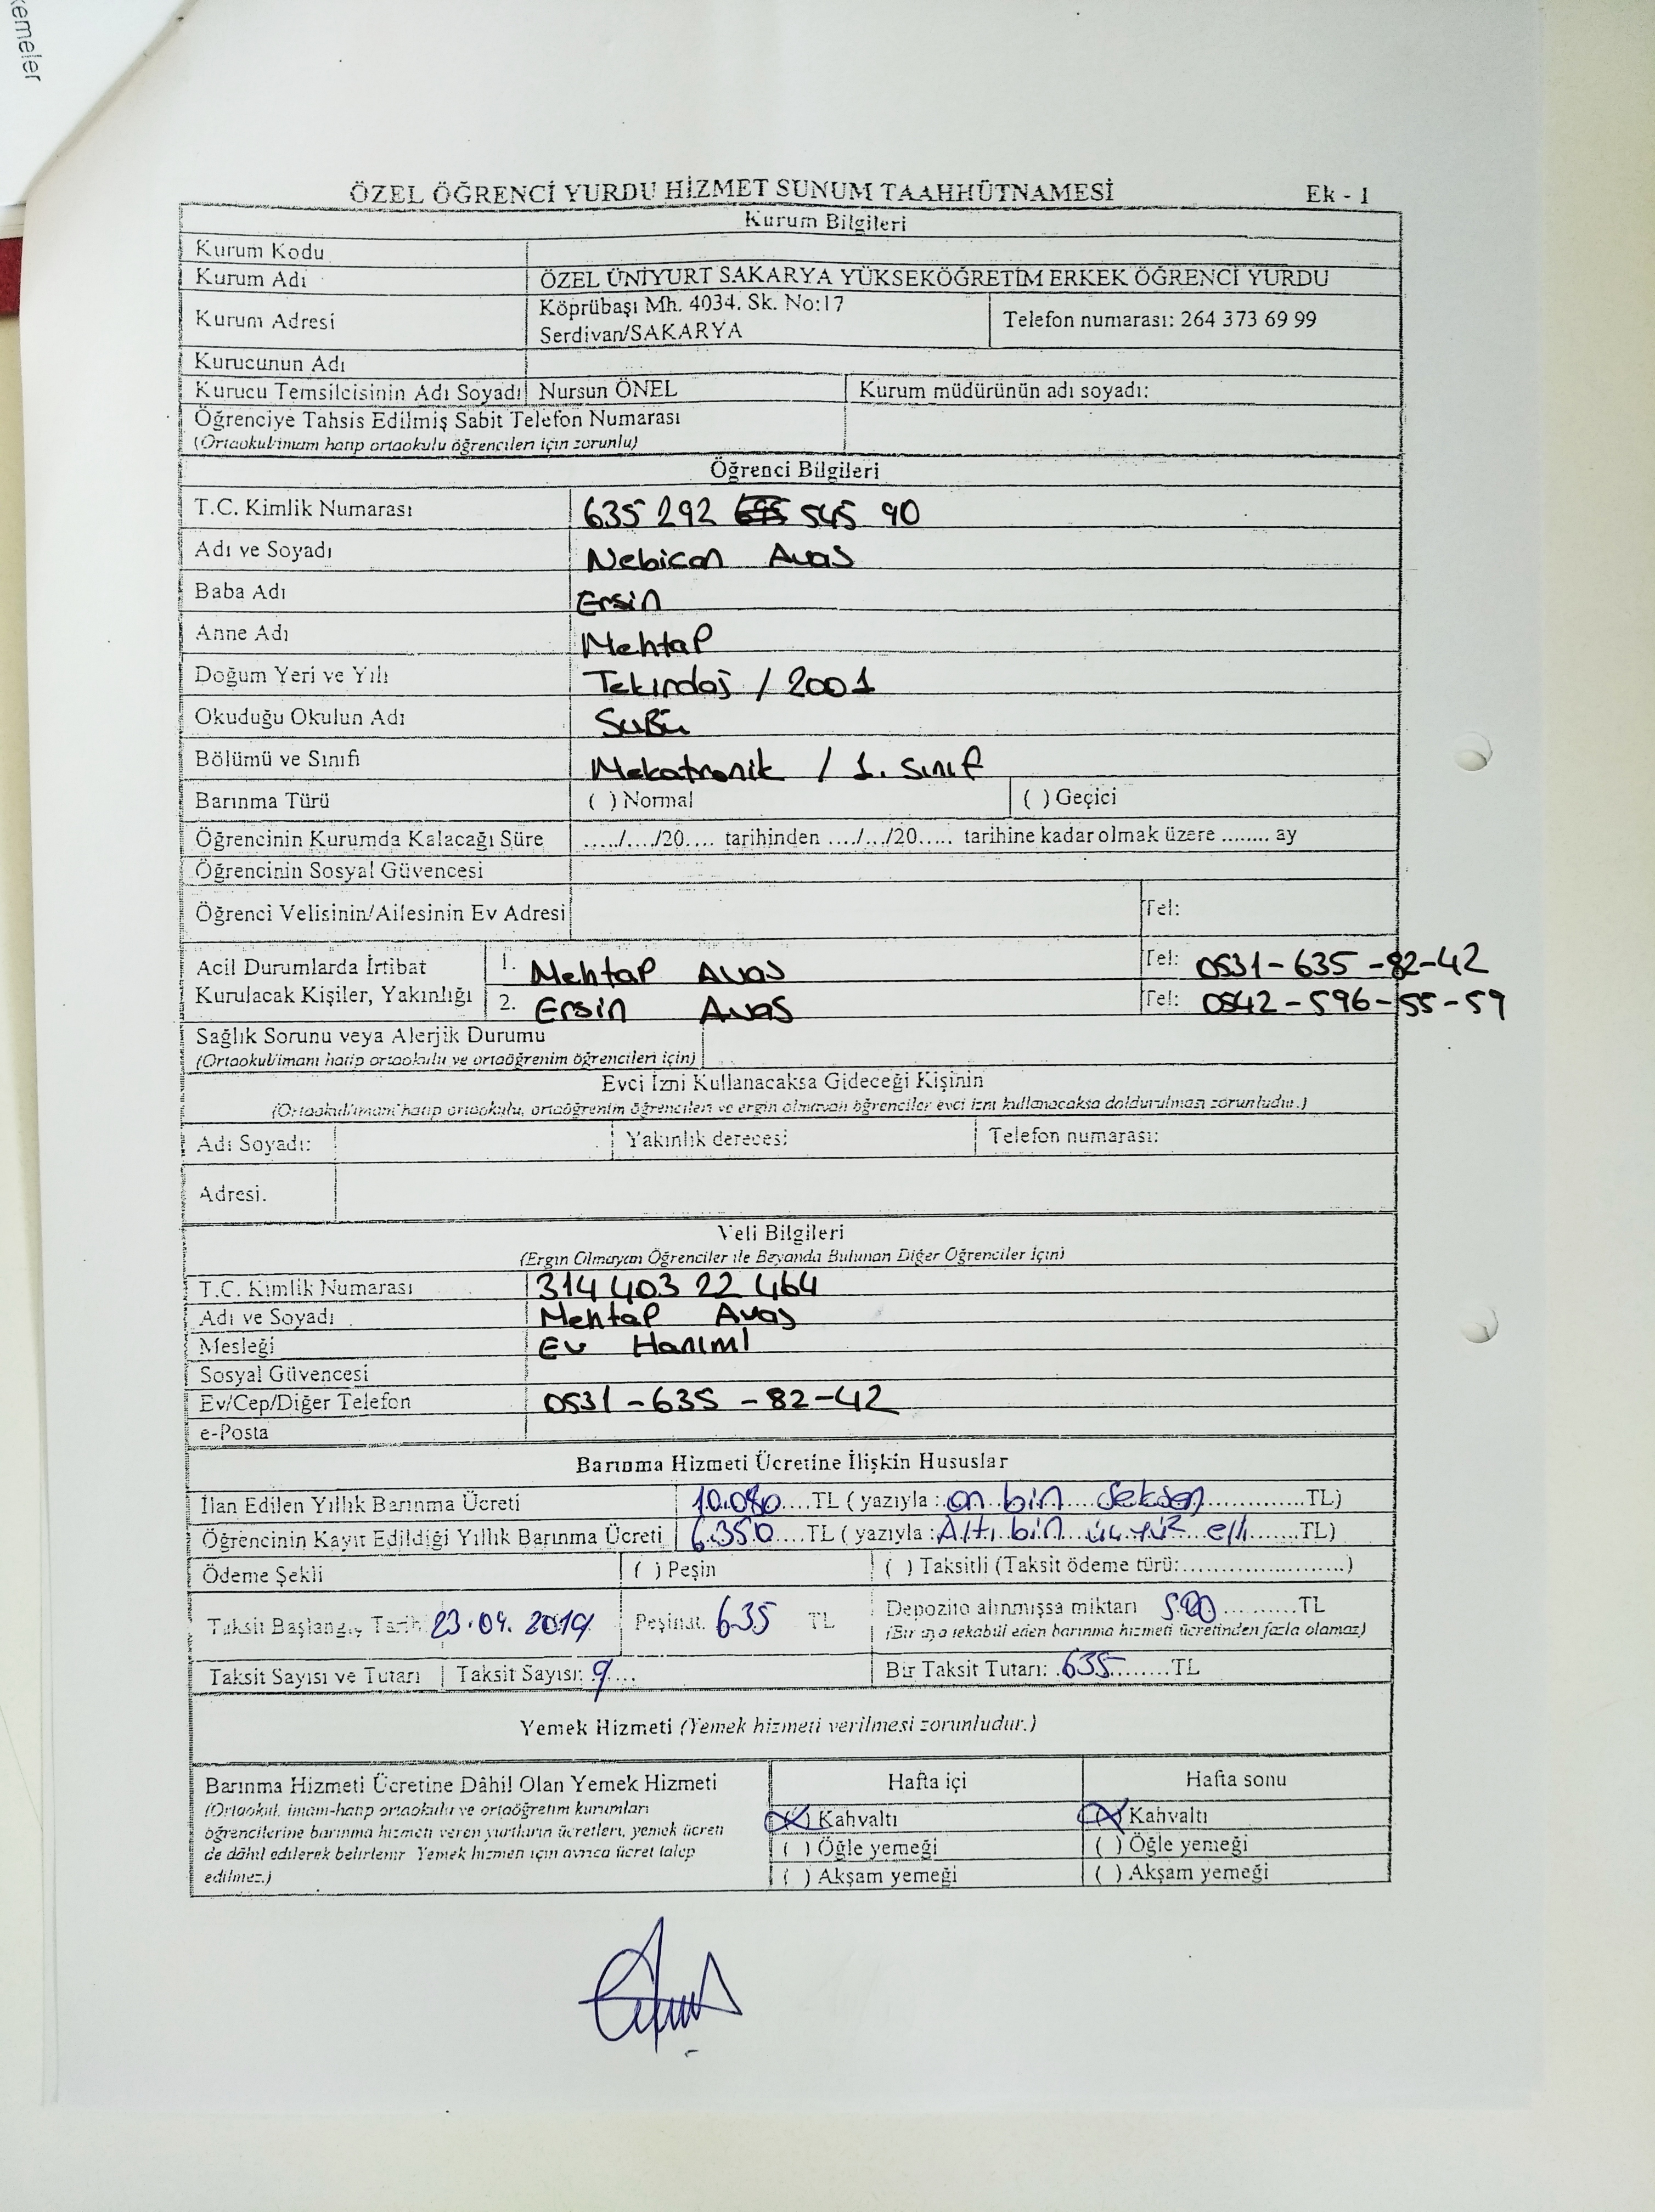 kemeler
ÖZEL ÖĞRENCİ YURDU HİZMET SUNUM TAAHHÜTNAMESİ Ek - 1
Kurum Bilgileri
Kurum Kodu
Kurum Adı ÖZEL ÜNİYURT SAKARYA YÜKSEKÖĞRETİM ERKEK ÖĞRENCİ YURDU
Kurum Adresi Köprübaşı Mh. 4034. Sk. No:17
Serdivan/SAKARYA Telefon numarası: 264 373 69 99
Kurucunun Adı
Kurucu Temsilcisinin Adı Soyadı Nursun ÖNEL Kurum müdürünün adı soyadı:
Öğrenciye Tahsis Edilmiş Sabit Telefon Numarası
(Ortaokul/imam hatip ortaokulu öğrencileri için zorunlu)
Öğrenci Bilgileri
T.C. Kimlik Numarası 635 292 545 90
Adı ve Soyadı Nebican Avas
Baba Adı Ersin
Anne Adı Mehtap
Doğum Yeri ve Yılı Tekirdağ / 2001
Okuduğu Okulun Adı SUBÜ
Bölümü ve Sınıfı Mekatronik / 1. sınıf
Barınma Türü ( ) Normal ( ) Geçici
Öğrencinin Kurumda Kalacağı Süre ...../..../20.... tarihinden ..../.../20..... tarihine kadar olmak üzere ........ ay
Öğrencinin Sosyal Güvencesi
Öğrenci Velisinin/Ailesinin Ev Adresi Tel:
Acil Durumlarda İrtibat 1. Mehtap Avas Tel: 0531-635-82-42
Kurulacak Kişiler, Yakınlığı 2. Ersin Avas Tel: 0542-596-55-59
Sağlık Sorunu veya Alerjik Durumu
(Ortaokul/imam hatip ortaokulu ve ortaöğrenim öğrencileri için)
Evci İzni Kullanacaksa Gideceği Kişinin
(Ortaokul/imam hatip ortaokulu, ortaöğrenim öğrencileri ve ergin olmayan öğrenciler evci izni kullanacaksa doldurulması zorunludur.)
Adı Soyadı: Yakınlık derecesi: Telefon numarası:
Adresi.
Veli Bilgileri
(Ergin Olmayan Öğrenciler ile Beyanda Bulunan Diğer Öğrenciler İçin)
T.C. Kimlik Numarası 314 403 22 464
Adı ve Soyadı Mehtap Avas
Mesleği Ev Hanımı
Sosyal Güvencesi
Ev/Cep/Diğer Telefon 0531-635-82-42
e-Posta
Barınma Hizmeti Ücretine İlişkin Hususlar
İlan Edilen Yıllık Barınma Ücreti 10.080....TL ( yazıyla : on bin seksen..............TL)
Öğrencinin Kayıt Edildiği Yıllık Barınma Ücreti 6.350....TL ( yazıyla : Altı bin üç yüz elli.......TL)
Ödeme Şekli ( ) Peşin ( ) Taksitli (Taksit ödeme türü:......................)
Taksit Başlangıç Tarih 23.09.2019 Peşinat. 635 TL Depozito alınmışsa miktarı 500...........TL
(Bir aya tekabül eden barınma hizmeti ücretinden fazla olamaz)
Taksit Sayısı ve Tutarı Taksit Sayısı: 9.... Bir Taksit Tutarı: 635........TL
Yemek Hizmeti (Yemek hizmeti verilmesi zorunludur.)
Barınma Hizmeti Ücretine Dâhil Olan Yemek Hizmeti Hafta içi Hafta sonu
(Ortaokul, imam-hatip ortaokulu ve ortaöğretim kurumları (X) Kahvaltı (X) Kahvaltı
öğrencilerine barınma hizmeti veren yurtların ücretleri, yemek ücreti ( ) Öğle yemeği ( ) Öğle yemeği
de dâhil edilerek belirlenir. Yemek hizmeti için ayrıca ücret talep ( ) Akşam yemeği ( ) Akşam yemeği
edilmez.)